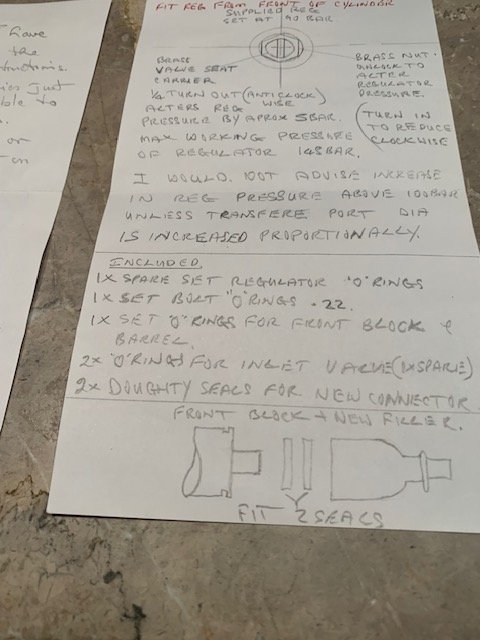 FIT REG FROM FRONT OF CYLINDER
SUPPLIED REG
SET AT 90 BAR
BRASS
VALVE SEAT
CARRIER
BRASS NUT.
UNLOCK TO
ALTER
REGULATOR
PRESSURE.
1/4 TURN OUT (ANTICLOCK)
ALTERS REG WISE
PRESSURE BY APROX 5BAR.
(TURN IN
TO REDUCE
CLOCKWISE
MAX WORKING PRESSURE
OF REGULATOR 145BAR.
I WOULD. NOT ADVISE INCREASE
IN REG PRESSURE ABOVE 100BAR
UNLESS TRANSFERE PORT DIA
IS INCREASED PROPORTIONALLY.
INCLUDED.
1X SPARE SET REGULATOR "O" RINGS
1X SET BOLT "O" RINGS .22.
1X SET "O" RINGS FOR FRONT BLOCK &
BARREL.
2x "O" RINGS FOR INLET VALVE (1XSPARE)
2x DOUGHTY SEALS FOR NEW CONNECTOR
FRONT BLOCK + NEW FILLER.
FIT 2 SEALS
have
the
just
to
or
on